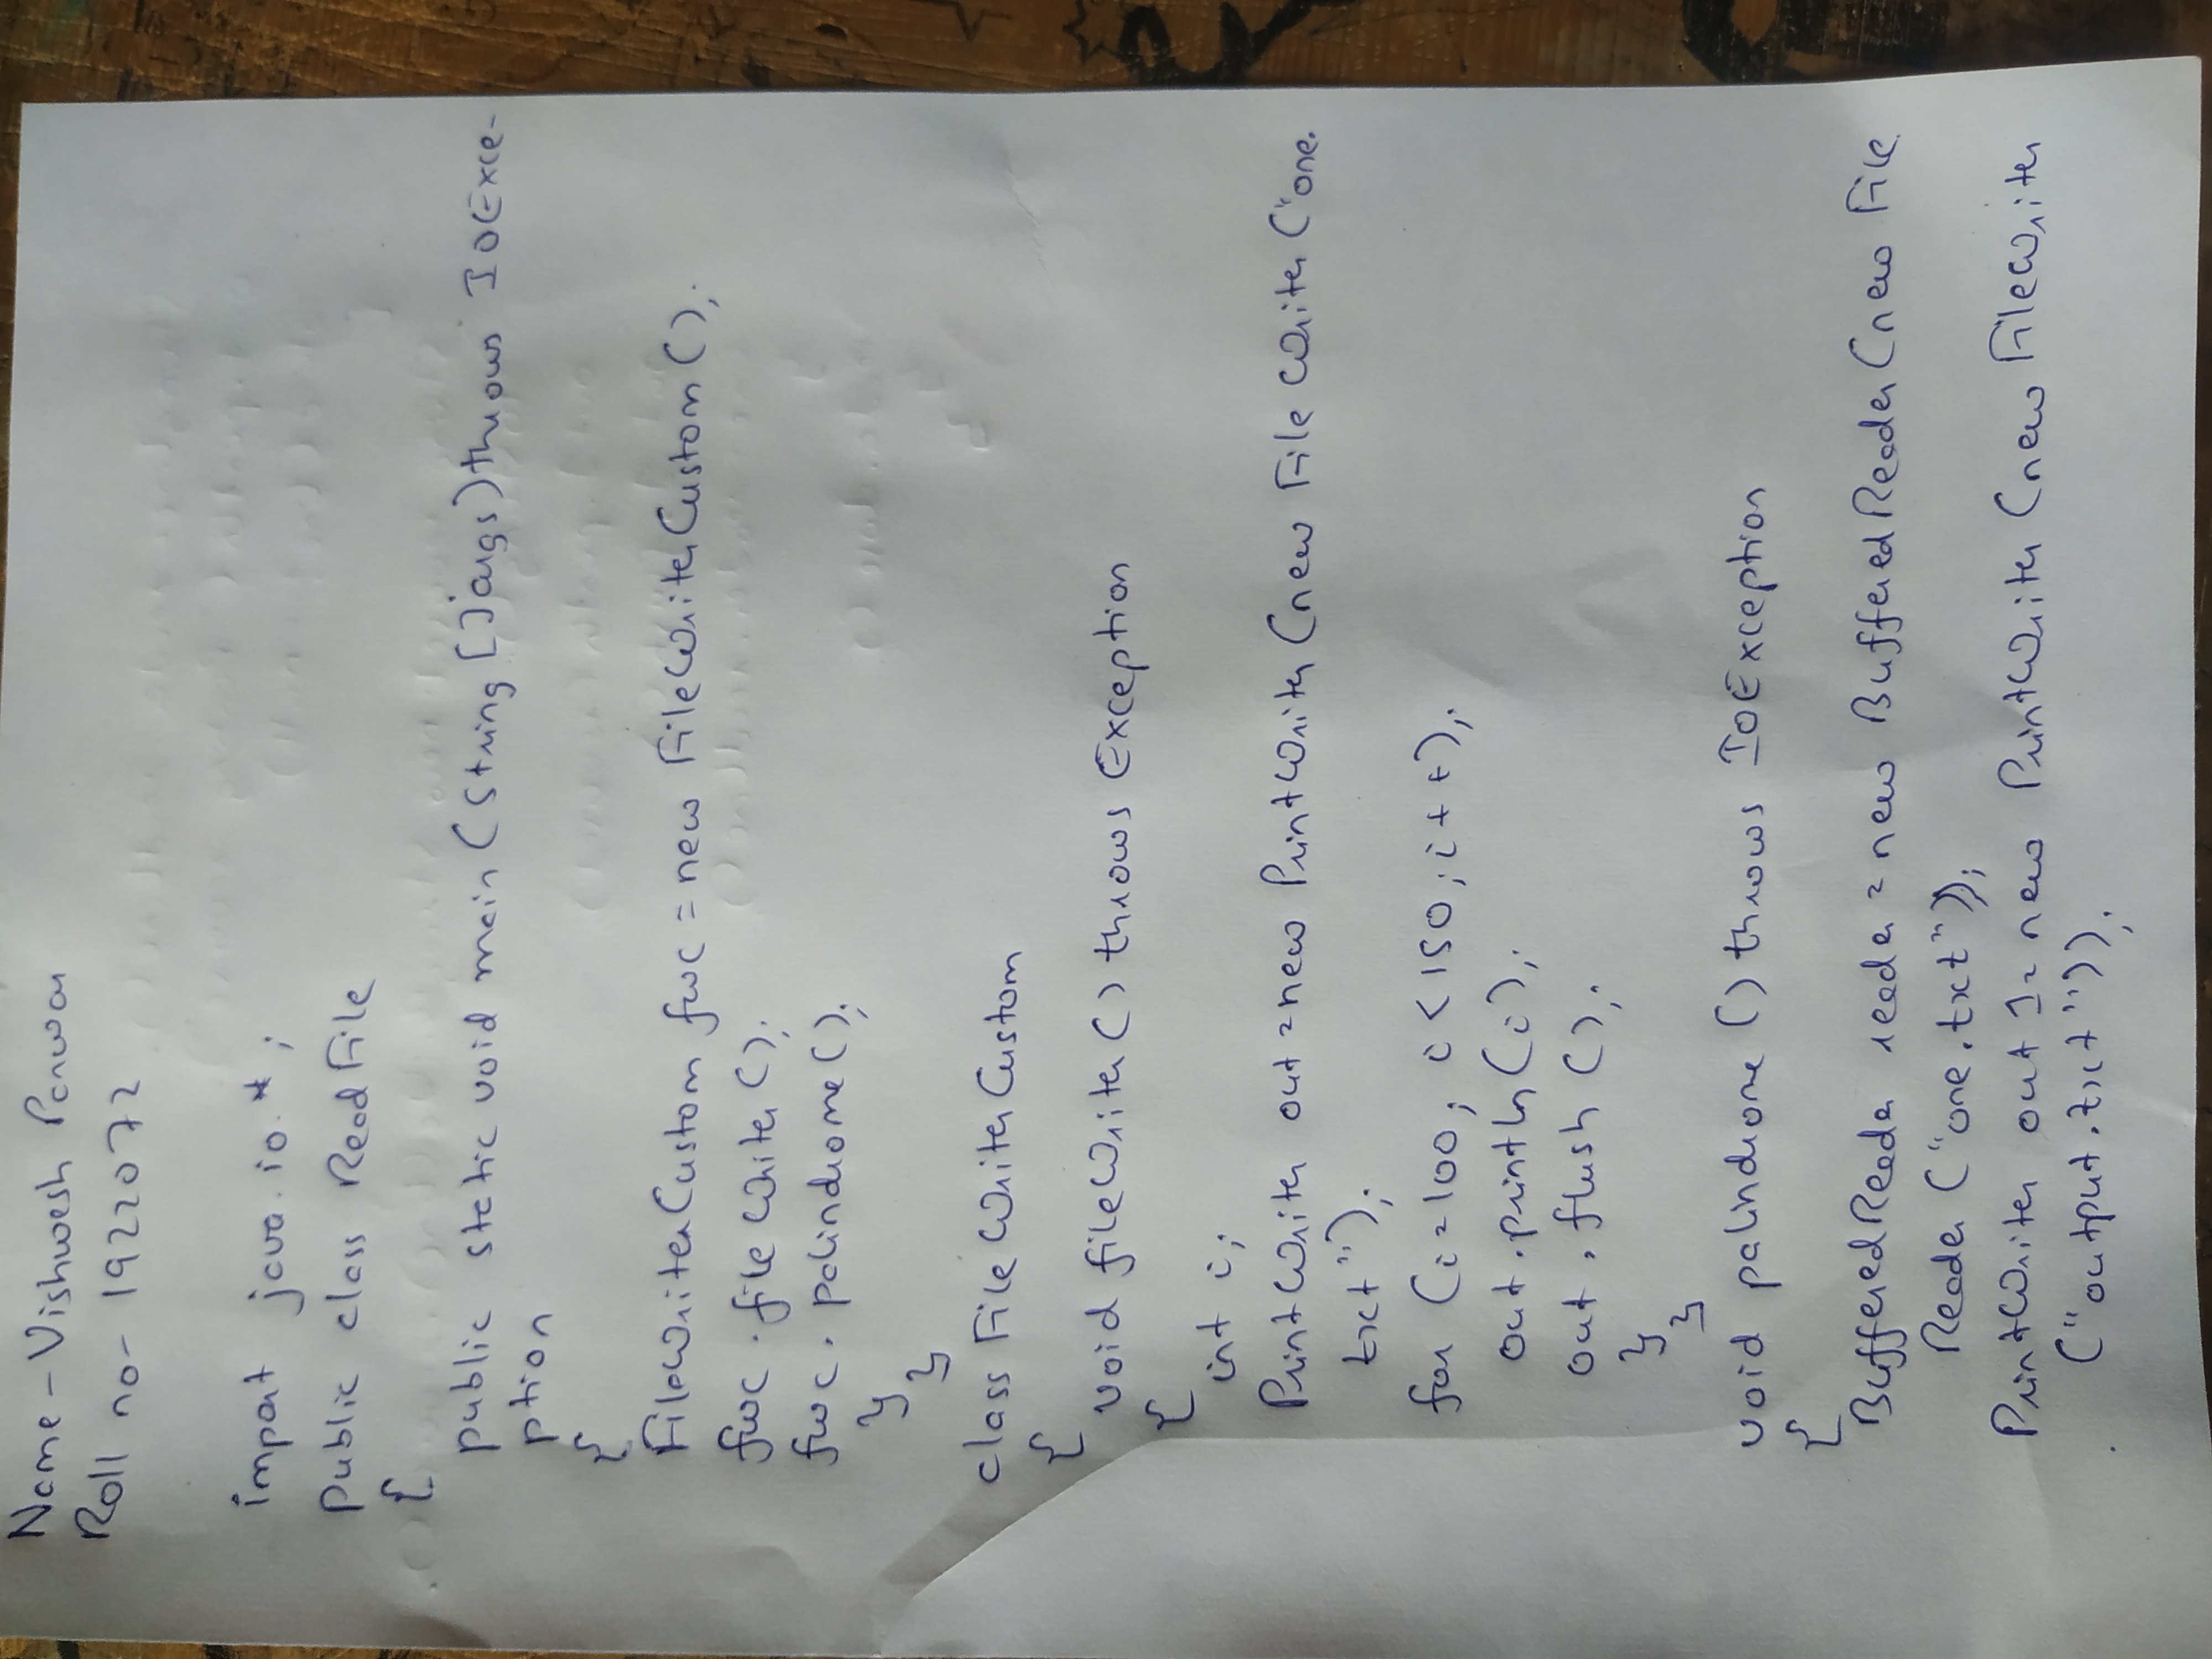 Name - Vishwesh Panwar
Roll no- 1922072
import java.io.*;
public class ReadFile
{
public static void main (String []args) throws IOExce-
ption
{
FileWriterCustom fwc = new FileWriterCustom();
fwc.fileWriter();
fwc.palindrome();
}
}
class FileWriterCustom
{
void fileWriter() throws Exception
{
int i;
PrintWriter out = new PrintWriter (new FileWriter ("one.
txt");
for (i=100; i<150; i++);
out.println(i);
out.flush();
}
}
void palindrome () throws IOException
{
BufferedReader reader = new BufferedReader (new File
Reader ("one.txt"));
PrintWriter out 1= new PrintWriter (new FileWriter
("output.txt"));